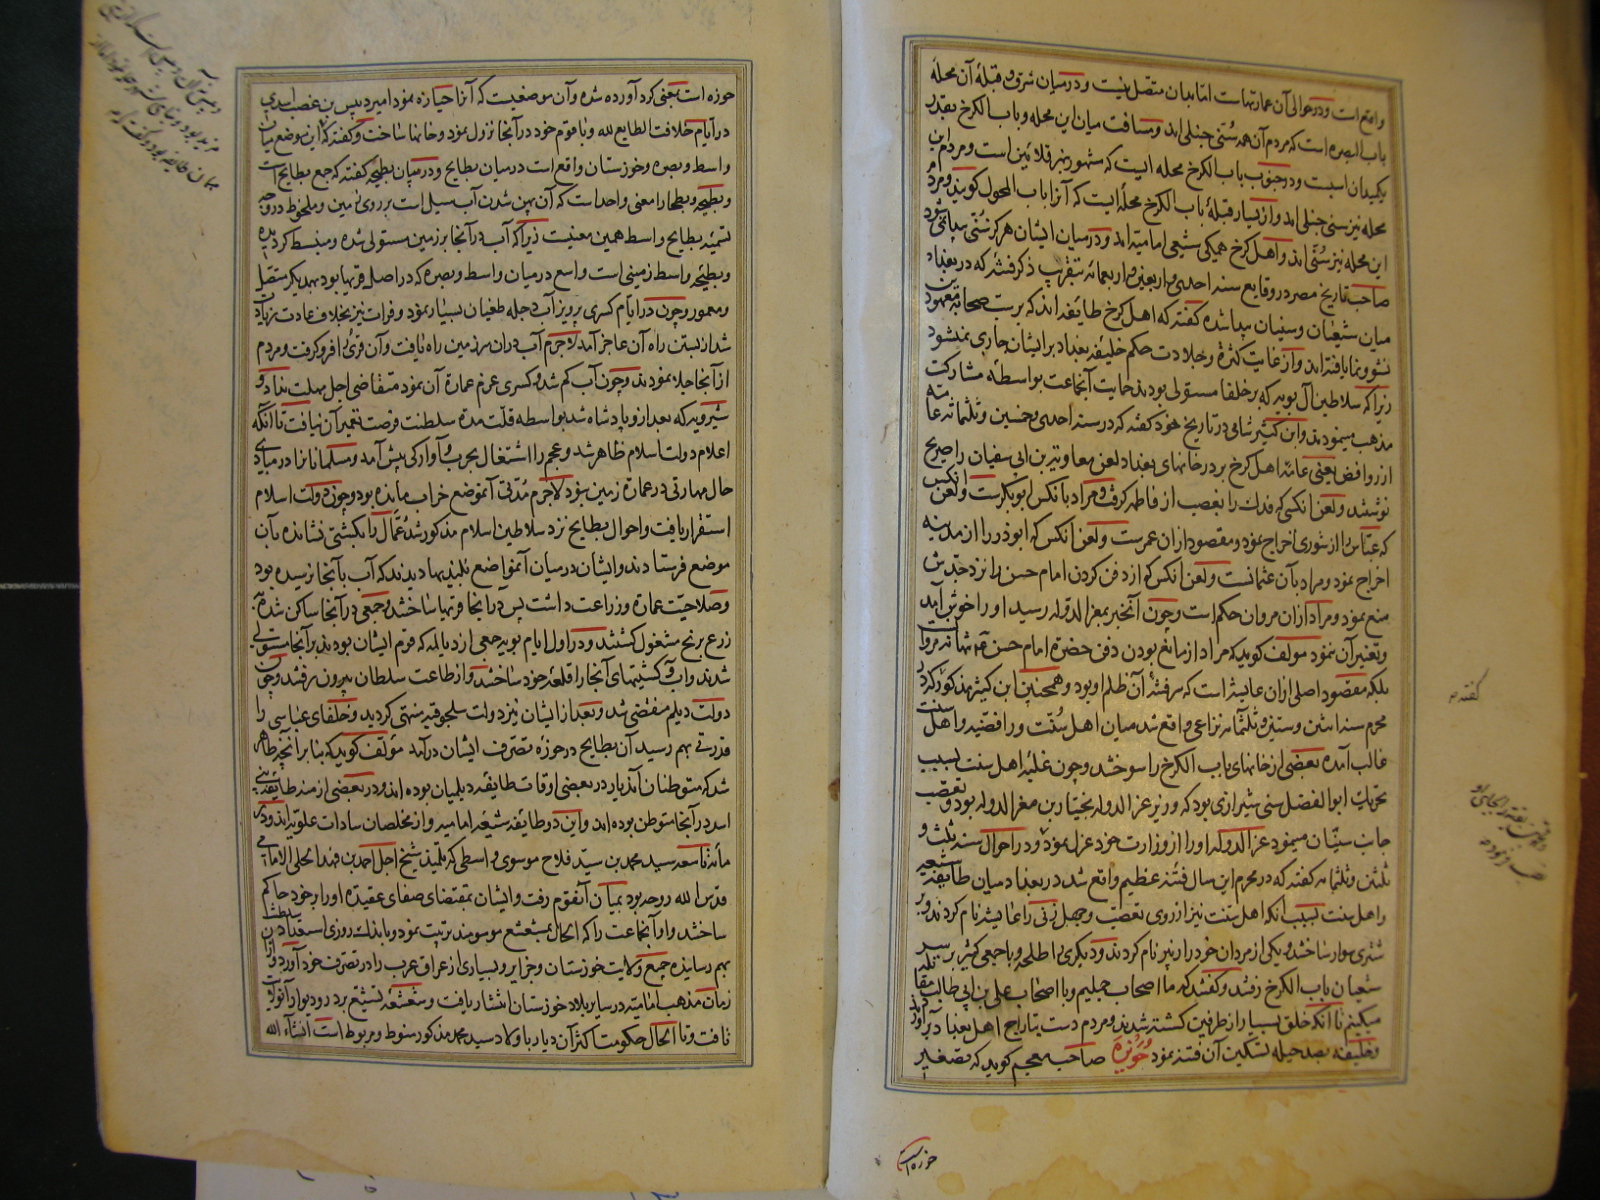 واقع است و در حوالی آن عمارتهاست اما بدان متصل نیست و در میان شرق و قبلهٔ آن محله
باب البصره است که مردم آن همه سُنّی حنبلی اند و مسافت میان این محله و باب الکرخ بقدر
یکمیدان اسبست و در جنوب باب الکرخ محله ایست که مشهور بنهر قلائین است و مردم این
محله نیز سنی حنبلی اند و از یسار قبلهٔ باب الکرخ محلهٔ ایست که آنرا باب المحول گویند و مردم
این محله نیز سُنّی اند و اهل کرخ همگی شیعی امامیّه اند و در میان ایشان هرگز سُنّی پیدا نمی شود
صاحب تاریخ مصر در وقایع سنه احدی و اربعین و اربعمائه بتقریب ذکر فتنهٔ که در بغداد
میان شیعیان و سنیان پیدا شده گفته که اهل کرخ طایفه اند که بر سبّ صحابه معهودین
نشو و نما یافته اند و از غایت کثرة و جلادت حکم خلیفه بغداد بر ایشان جاری نمیشود
زیرا که سلاطین آل بویه که بر خلفا مستولی بودند حمایت آنجماعت بواسطهٔ مشارکت
مذهب مینمودند و ابن کثیر شامی در تاریخ خود گفته که در سنه احدی و خمسین و ثلثمائه عامه
از روافض یعنی عامّه اهل کرخ بر در خانهای بغداد لعن معاویة بن ابی سفیان را صریح
نوشتند و لعن انکسی که فدک را بغصب از فاطمه گرفت و مراد بآنکس ابوبکرست و لعن آنکس
که عباس را از شوری اخراج نمود و مقصود از ان عمرست و لعن آنکس که ابوذر را از مدینه
اخراج نمود و مراد بآن عثمانست و لعن آنکس که از دفن کردن امام حسن را نزد جدش
منع نمود و مراد از ان مروان حکم است و چون آنخبر بمعز الدوله رسید او را خوش آمد
و تغییر آن ننمود مؤلف گوید که مراد از مانع بودن دفن حضرة امام حسن ع نه تنها مروان
بلکه مقصود اصلی ازان عایشه است که سر فتنهٔ آن ظلم او بود و همچنین ابن کثیر مذکور گوید که در
محرم سنه اثنین و ستین و ثلثمائه نزاعی واقع شد میان اهل سُنّت و رافضیه و اهل سنت
غالب آمده بعضی از خانهای باب الکرخ را سوختند و چون غلبهٔ اهل سنت بسبب
تحریک ابو الفضل سنی شیرازی بود که وزیر عز الدوله بختیار بن معز الدوله بود و تعصب
جانب سنّیان مینمود عز الدوله او را از وزارت خود عزل نمود و در احوال سنه ثلث و
ثلثین و ثلثمائه گفته که در محرم این سال فتنهٔ عظیم واقع شد در بغداد میان طایفهٔ شیعه
و اهل سنت بسبب انکه اهل سنت نیز از روی تعصّب و جهل زنی را عایشه نام کردند و بر
شتری سوار ساختند و یکی از مردان خود را زبیر نام کردند و دیگری را طلحه و با جمعی کثیر بر سر
شیعیان باب الکرخ رفتند و گفتند که ما اصحاب جملیم و با اصحاب علی بن ابی طالب مقاتله
میکنیم تا انکه خلق بسیار از طرفین کشته شدند و مردم دست بتاراج اهل بغداد برآوردند
و خلیفه بصد حیله تسکین آن فتنه نمود حُوَیْزَه صاحب معجم گوید که تصغیر
گفته
حوزه است
حوزه است یعنی گرد آورده شده و آن موضعیست که آنرا حیازه نمود امیر دبیس بن عفیف اسدی
در ایام خلافت الطایع لله و با قوم خود در آنجا نزول نمود و خانها ساخت و گفته که این موضع میان
واسط و بصره و خوزستان واقع است در میان بطایح و در میان بطیحه گفته که جمع بطایح است
و بطیحه و بطحا را معنی واحد است که آن پهن شدن آب سیل است بر روی زمین و ملحوظ در وجه
تسمیهٔ بطایح واسط همین معنیست زیرا که آب در آنجا بر زمین مستولی شده و منبسط گردیده
و بطیحهٔ واسط زمینی است واسع در میان واسط و بصره که در اصل قریها بود بهم دیگر متصل
و معمور و چون در ایام کسری پرویز آب دجله طغیان بسیار نمود و فرات نیز بخلاف عادت زیاده
شد از بستن راه آن عاجز آمد لاجرم آب در ان سرزمین راه یافت و آن قری را فرو گرفت و مردم
از آنجا جلا نمودند و چون آب کم شد و کسری عزم عمارة آن نمود متقاضی اجل مهلت نداد و
شیرویه که بعد از و پادشاه شد بواسطه قلّت مدّة سلطنت فرصت تعمیر آن نیافت تا آنگه
اعلام دولت اسلام ظاهر شد و عجم را اشتغال بحرب و آوارگی پیش آمد و مسلمانانرا در مبادی
حال مهارتی در عمارة زمین نبود لاجرم مدّتی آنموضع خراب مانده بود و چون دولت اسلام
استقرار یافت و احوال بطایح نزد سلاطین اسلام مذکور شد عُمّال را بکشتی نشانده بآن
موضع فرستادند و ایشان در میان آنمواضع بلندیها دیدند که آب بآنجا نرسیده بود
و صلاحیّت عمارة و زراعت داشت پس در آنجا قریها ساختند و جمعی در آنجا ساکن شده به
زرع برنج مشغول گشتند و در اول ایام بویه جمعی از دیالمه که قوم ایشان بودند بر آنجا مستولی
شدند و آب و کشتیهای آنجا را قلعهٔ خود ساختند و از طاعت سلطان بیرون رفتند و چون
دولت دیلم منقضی شد و بعد از ایشان نیز دولت سلجوقیه منتهی گردید و خلفای عباسی را
قدرتی بهم رسید آن بطایح در حوزهٔ تصرف ایشان در آمد مؤلف گوید که بنا بر آنچه ظاهر
شد که متوطنان آندیار در بعضی اوقات طایفه دیلمیان بوده اند و در بعضی از منه طایفهٔ بنی
اسد در آنجا متوطن بوده اند و این دو طایفه شیعهٔ امامیه و از مخلصان سادات علویه اند و در
مائه تاسعه سید محمد بن سیّد فلاح موسوی واسطی که تلمیذ شیخ اجل احمد بن فهد الحلی الامامی
قدس الله روحه بود بمیان آنقوم رفت و ایشان بمقتضای صفای عقیدة او را بر خود حاکم
ساختند و او آنجماعت را که الحال بمشعشع موسومند تربیت نمود و باندک روزی استعداد سلطنت
بهم رسانیده جمیع ولایت خوزستان و جزایر و بسیاری از عراق عرب را در تصرف خود آورد و از آن
زمان مذهب امامیه در سایر بلاد خوزستان انتشار یافت و مشعشعهٔ تشیّع بر در و دیوار آنولا
تافت و تا الحال حکومت اکثر آن دیار با اولاد سید محمد مذکور منوط و مربوط است انشآء الله